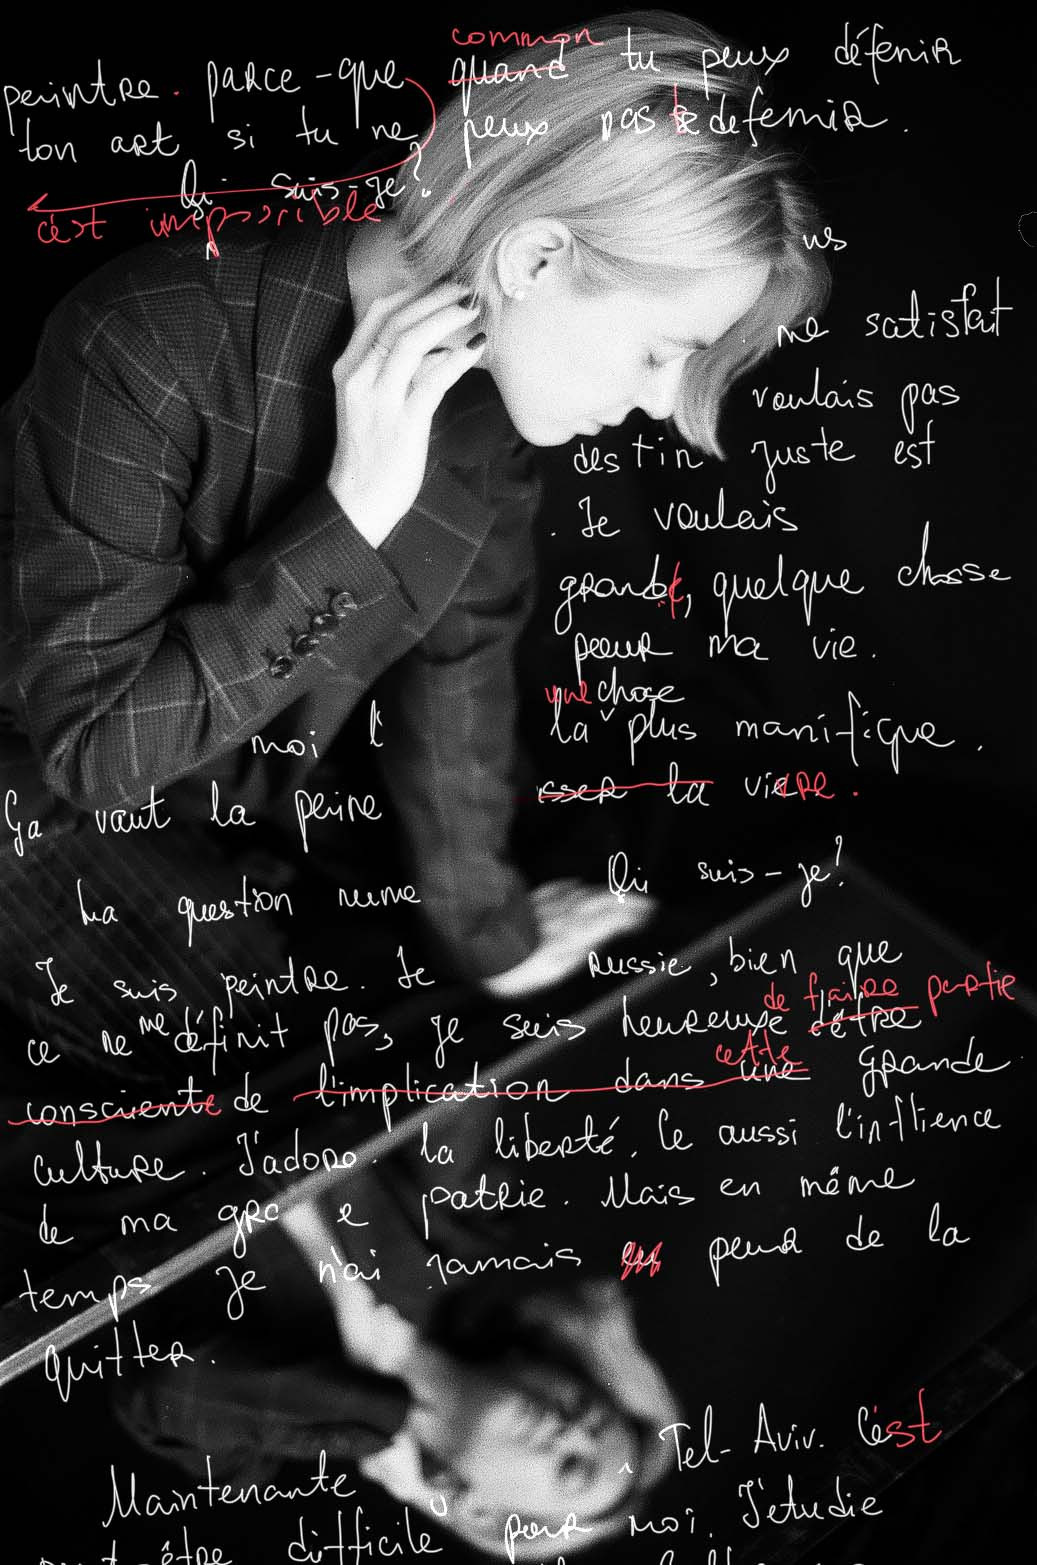 common
peintre. parce-que quand tu peux défenir
ton art si tu ne peux pas te defenir.
Qi suis-je?
c'est impossible
us
me satisfait
voulais pas
destin juste est
. Je voulais
grande, quelque chosse
pour ma vie.
une chose
la plus manifique.
moi l'
Ça vaut la peine sser la vivre.
La question meme Qui suis-je?
Je suis peintre. Je russie, bien que
de faire partie
ce ne me définit pas, je suis heureuse d'être
cette
consciente de l'implication dans une grande
culture. J'adore la liberté. Ce aussi l'inflience
de ma gra e patrie. Mais en même
temps je n'ai jamais peur de la
quitter.
Tel-Aviv. C'est
Maintenante
peut-être difficile pour moi. J'etudie